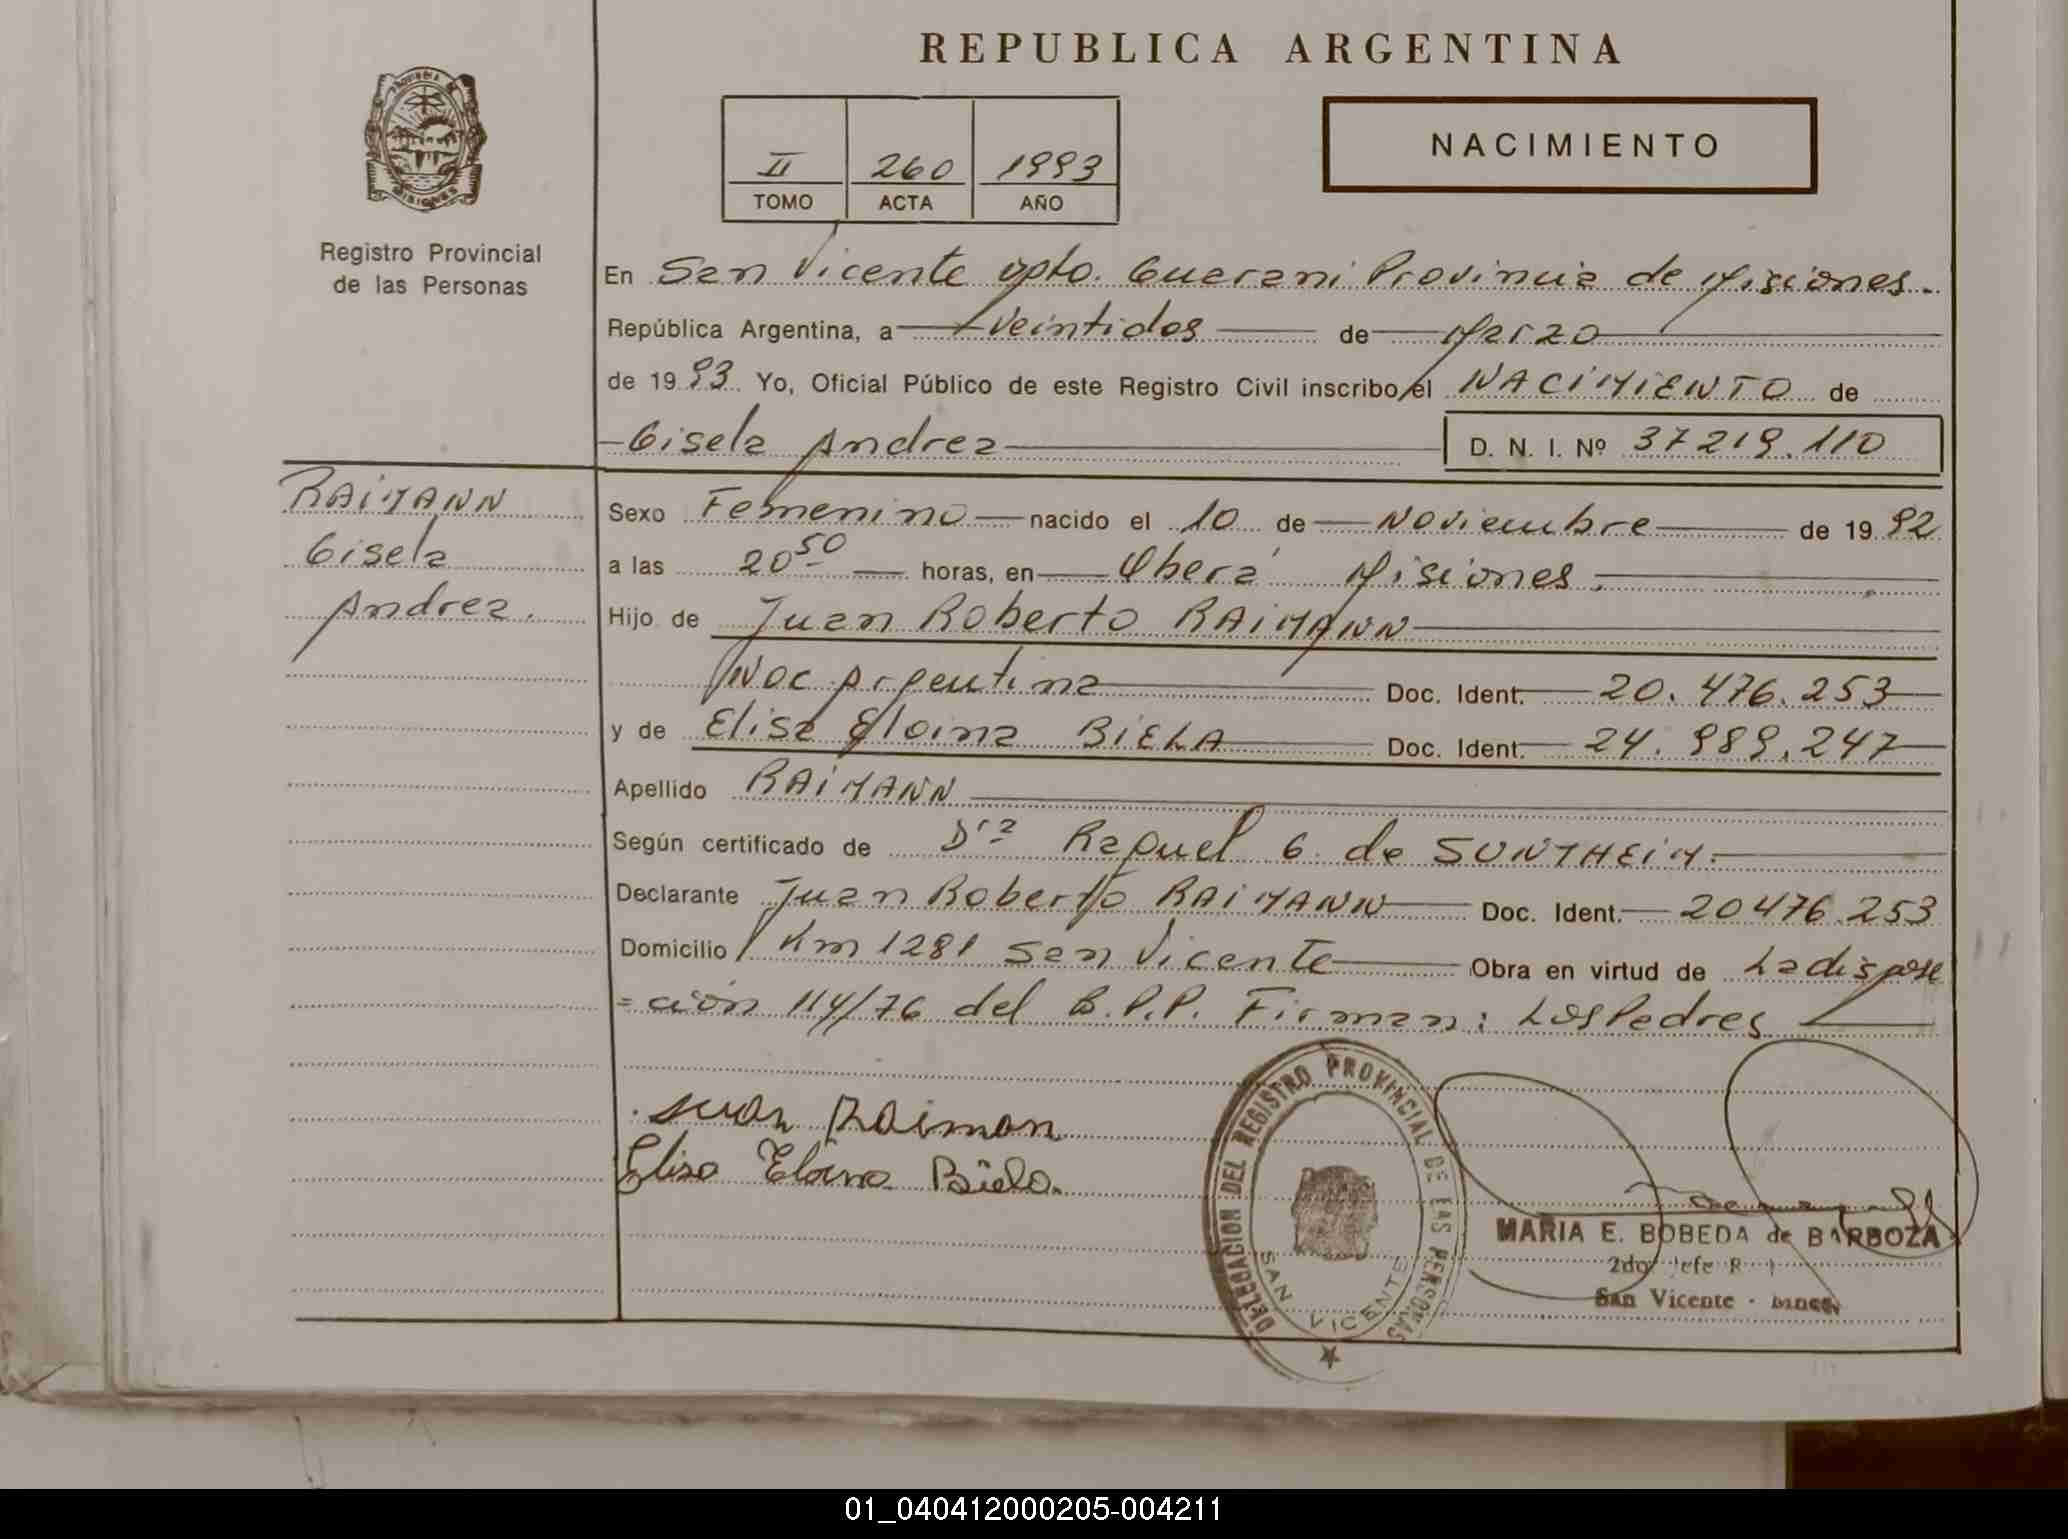 REPUBLICA ARGENTINA
PROVINCIA DE MISIONES
Registro Provincial
de las Personas
II 260 1993
TOMO ACTA AÑO
NACIMIENTO
En San Vicente Dpto. Guarani Provincia de Misiones.
República Argentina, a veintidos de Marzo
de 1993 Yo, Oficial Público de este Registro Civil inscribo el NACIMIENTO de
Gisela Andrea D. N. I. Nº 37219.110
RAIMANN
Gisela
Andrea.
Sexo Femenino nacido el 10 de Noviembre de 1992
a las 20 50 horas, en Oberá Misiones.
Hijo de Juan Roberto RAIMANN
Nac Argentina Doc. Ident. 20.476.253
y de Elisa Eloina BIELA Doc. Ident. 24.989.247
Apellido RAIMANN
Según certificado de Dra Raquel G. de SUNTHEIM.
Declarante Juan Roberto RAIMANN Doc. Ident. 20476.253
Domicilio Km 1281 San Vicente Obra en virtud de La dispose
=ción 114/76 del B.P.P. Firman: Los Padres
Juan Raiman
Elisa Eloina Biela.
DELEGACION DEL REGISTRO PROVINCIAL DE LAS PERSONAS
SAN VICENTE
MARIA E. BOBEDA de BARBOZA
2do Jefe R
San Vicente - Mnes.
01_040412000205-004211